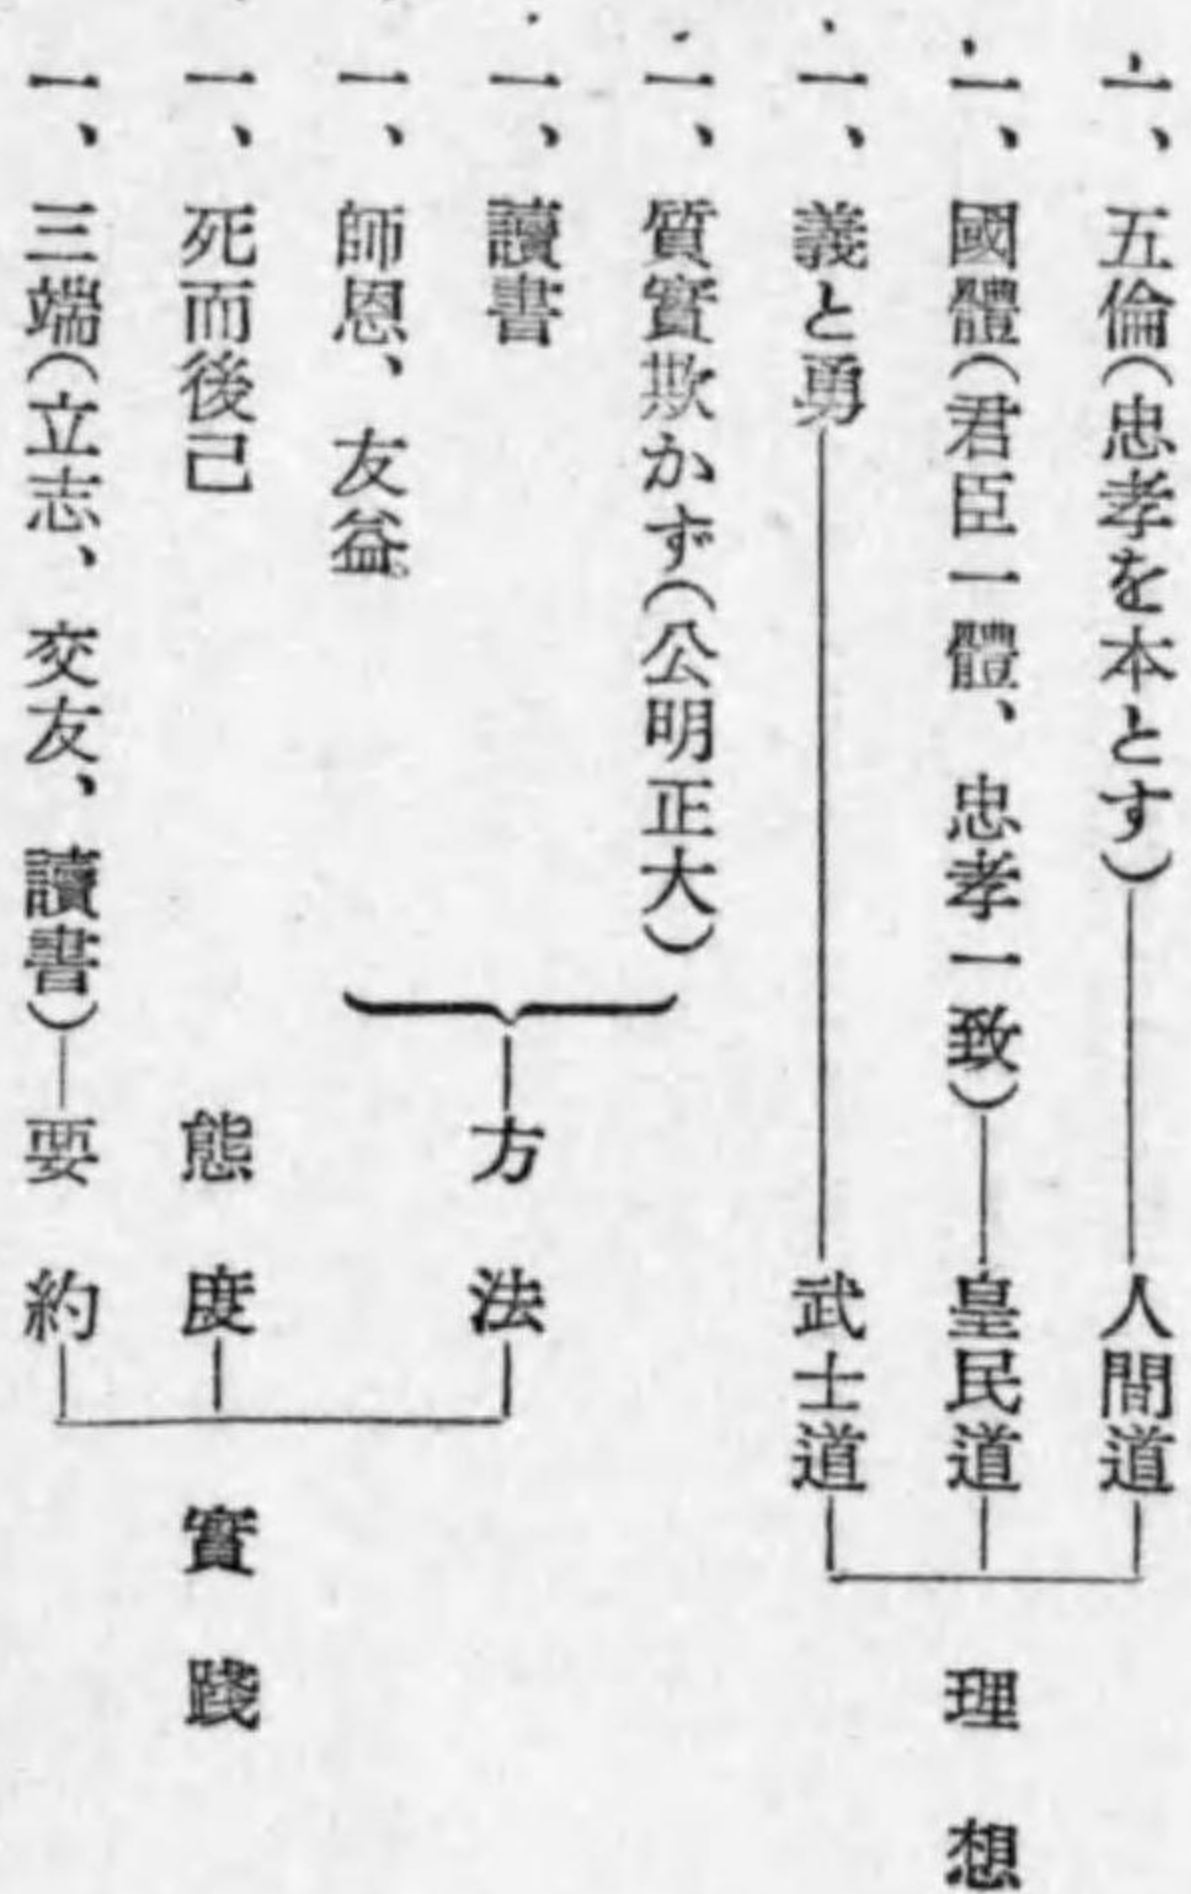 一、五倫(忠孝を本とす)
人間道
一、國體(君臣一體、忠孝一致)
皇民道
一、義と勇
武士道
理想
一、質實欺かず(公明正大)
一、讀書
一、師恩、友益
方法
一、死而後已
態度
一、三端(立志、交友、讀書)
要約
實踐